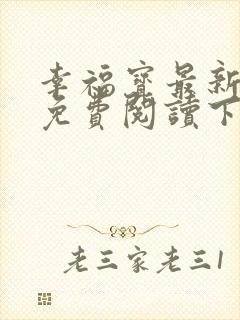 幸福寶最新
免費閱讀下
老三家老三1